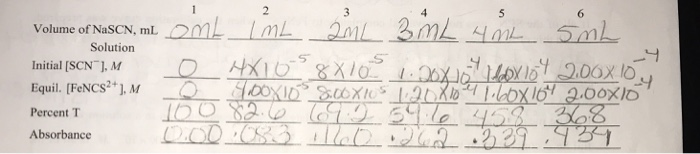 1 2 3 4 5 6
Volume of NaSCN, mL 0mL 1mL 2mL 3mL 4mL 5mL
Solution
Initial [SCN⁻], M 0 4X10⁻⁵ 8X10⁻⁵ 1.20X10⁻⁴ 1.60X10⁻⁴ 2.00X10⁻⁴
Equil. [FeNCS²⁺], M 0 4.00X10⁻⁵ 8.00X10⁻⁵ 1.20X10⁻⁴ 1.60X10⁻⁴ 2.00X10⁻⁴
Percent T 100 82.6 69.2 54.6 45.8 36.8
Absorbance 0.00 .083 .160 .262 .339 .434